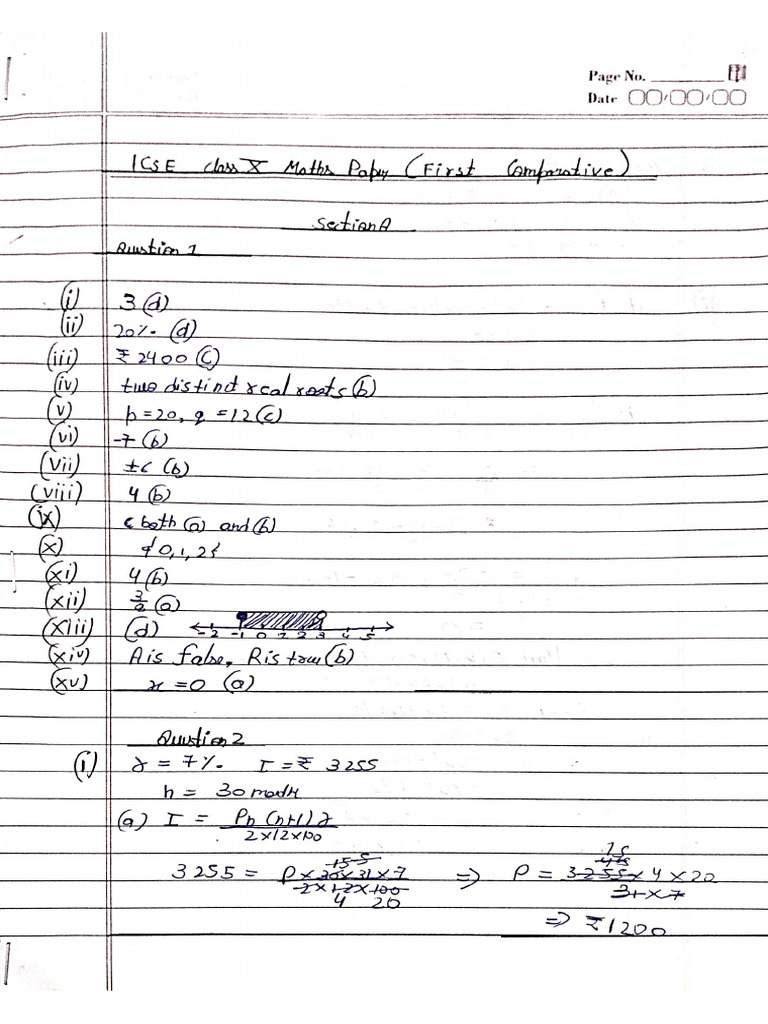 Page No.
Date
ICSE class X Maths Paper (First Comparative)
Section A
Question 1
(i) 3 (d)
(ii) 20%. (d)
(iii) ₹ 2400 (C)
(iv) two distinct real roots (b)
(v) p = 20, q = 12 (c)
(vi) -7 (b)
(vii) ±6 (b)
(viii) 4 (b)
(ix) c both (a) and (b)
(x) {0, 1, 2}
(xi) 4 (b)
(xii) 3/2 (a)
(xiii) (d) -2 -1 0 1 2 3 4 5
(xiv) A is false, R is true (b)
(xv) x = 0 (a)
Question 2
(i) r = 7%. I = ₹ 3255
n = 30 month
(a) I = Pn (n+1) r / 2×12×100
3255 = P × 30 × 31 × 7 / 2 × 12 × 100 ⇒ P = 3255 × 4 × 20 / 31 × 7
⇒ ₹ 1200